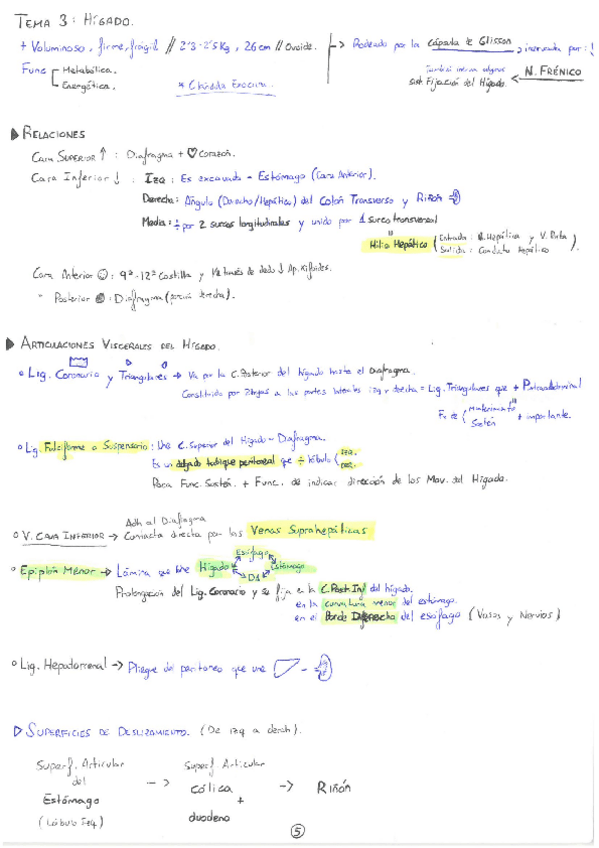 TEMA 3: HÍGADO.
+ Voluminoso, firme, frágil // 2'3-2'5 Kg, 26 cm // Ovoide.
Func Metabólica.
Energética.
* Glándula Exocrina.
-> Rodeado por la Cápsula de Glisson, inervada por:!
N. FRÉNICO
También inerva algunos
sist. Fijación del Hígado.
▶ RELACIONES
Cara SUPERIOR ↑ : Diafragma + ♥ Corazón.
Cara Inferior ↓ . Izq : Es excavada - Estómago (Cara Anterior).
Derecha: Ángulo (Derecho/Hepático) del Colon Transverso y Riñón
Media: ÷ por 2 surcos longitudinales y unido por 1 surco transversal
Hilio Hepático (Entrada: A. Hepática y V. Porta
Salida: Conducto Hepático).
Cara Anterior ☺: 9ª-12ª Costilla y 1/2 través de dedo ↓ Ap. Xifoides.
- Posterior : Diafragma (porción derecha).
▶ ARTICULACIONES VISCERALES DEL HÍGADO.
o Lig. Coronario y Triangulares → Va por la C. Posterior del hígado hasta el Diafragma.
Constituido por 2 hojas a las partes laterales izq y derecha = Lig. Triangulares que
Fx de Mantenimiento
Sostén + importante.
o Lig. Falciforme o Suspensorio: Une C. Superior del Hígado - Diafragma.
Es un delgado tabique peritoneal que ÷ lóbulo izq.
Para Func. Sostén. + Func. de indicar dirección de los Mov. del Hígado.
o V. CAVA INFERIOR → Adh al Diafragma
Contacta directa por las Venas Suprahepáticas
o Epiplón Menor → Lámina que une Hígado Esófago Estómago D1
Prolongación del Lig. Coronario y se fija en la C. Post. Inf del hígado.
en la curvatura menor del estómago.
en el Borde Derecho del esófago (Vasos y Nervios)
o Lig. Hepatorrenal → Pliegue del peritoneo que une -
▷ SUPERFICIES DE DESLIZAMIENTO. (De izq a derch).
Superf. Articular del Estómago (Lóbulo Izq) -> Superf Articular cólica + duodeno -> Riñón
5